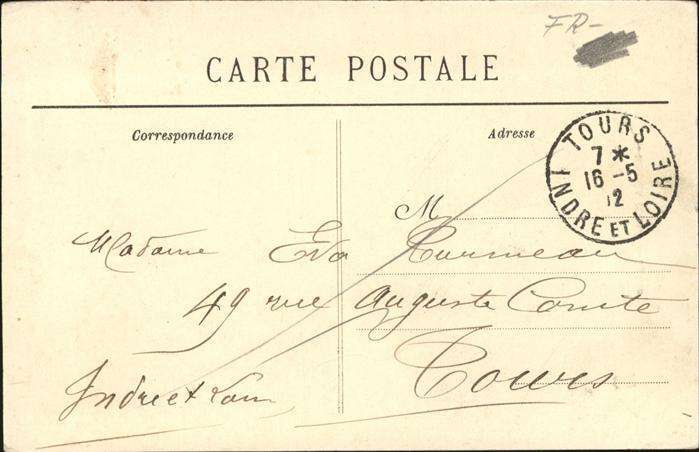 FR-
CARTE POSTALE
Correspondance
Adresse
TOURS
7 *
16 - 5
12
INDRE ET LOIRE
M
Madame Eva Turmeau
49 rue Auguste Comte
Tours
Indre et Loire